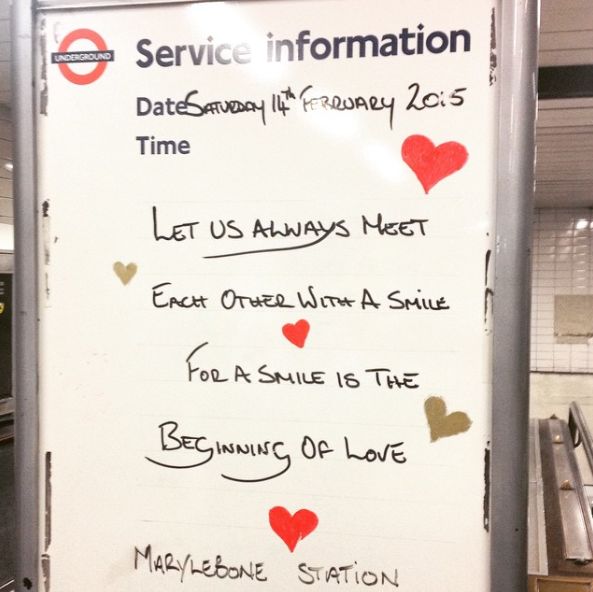 UNDERGROUND
Service information
Date SATURDAY 14th FEBRUARY 2015
Time
LET US ALWAYS MEET
EACH OTHER WITH A SMILE
FOR A SMILE IS THE
BEGINNING OF LOVE
MARYLEBONE STATION